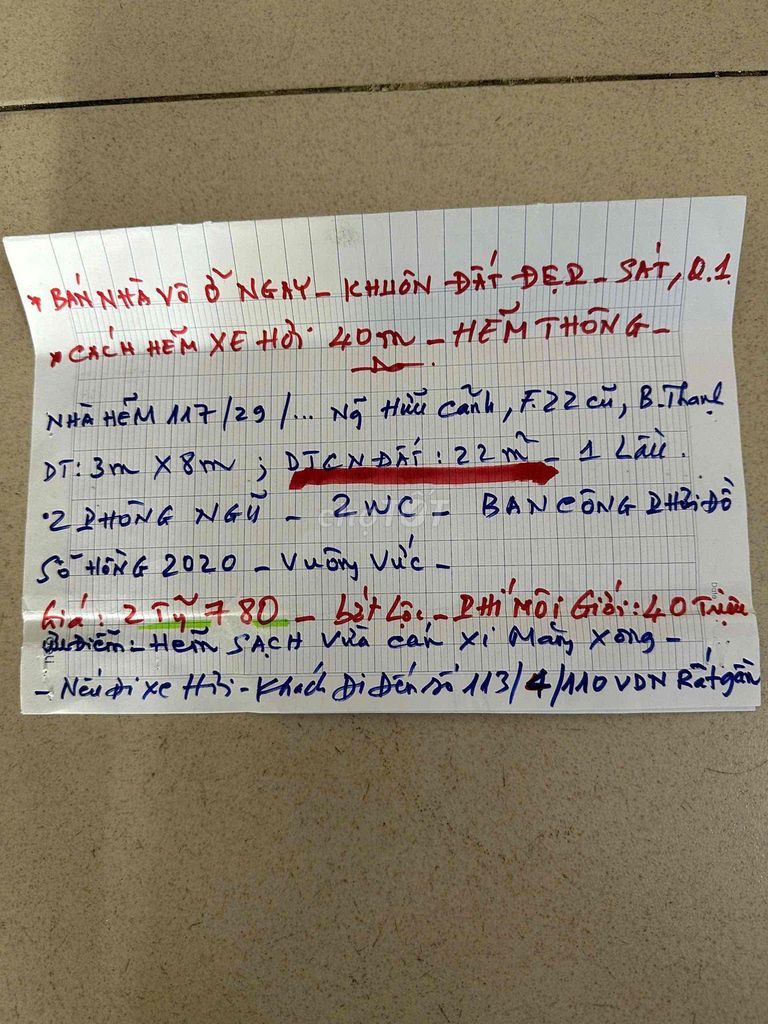 * BÁN NHÀ VÔ Ở NGAY - KHUÔN ĐẤT ĐẸP - SÁT, Q.1
* CÁCH HẼM XE HƠI 40m - HẼM THÔNG -
NHÀ HẼM 117/29/... Ng Hữu Cảnh, F.22 cũ, B.Thạnh
DT: 3m X 8m ; DTCN ĐẤT : 22 m² - 1 Lầu.
• 2 PHÒNG NGŨ - 2 WC - BAN CÔNG PHƠI ĐỒ
SỔ HỒNG 2020 - Vuông Vức -
Giá : 2 Tỹ 780 - bớt Lộc - PHÍ MÔI Giới : 40 Triệu
Ưu Điểm - Hẽm SẠCH Vừa cán Xi Măng Xong -
- Nếu Đi Xe Hơi - Khách Đi Đến Số 113/4/110 VDN Rất gần
chợTỐT